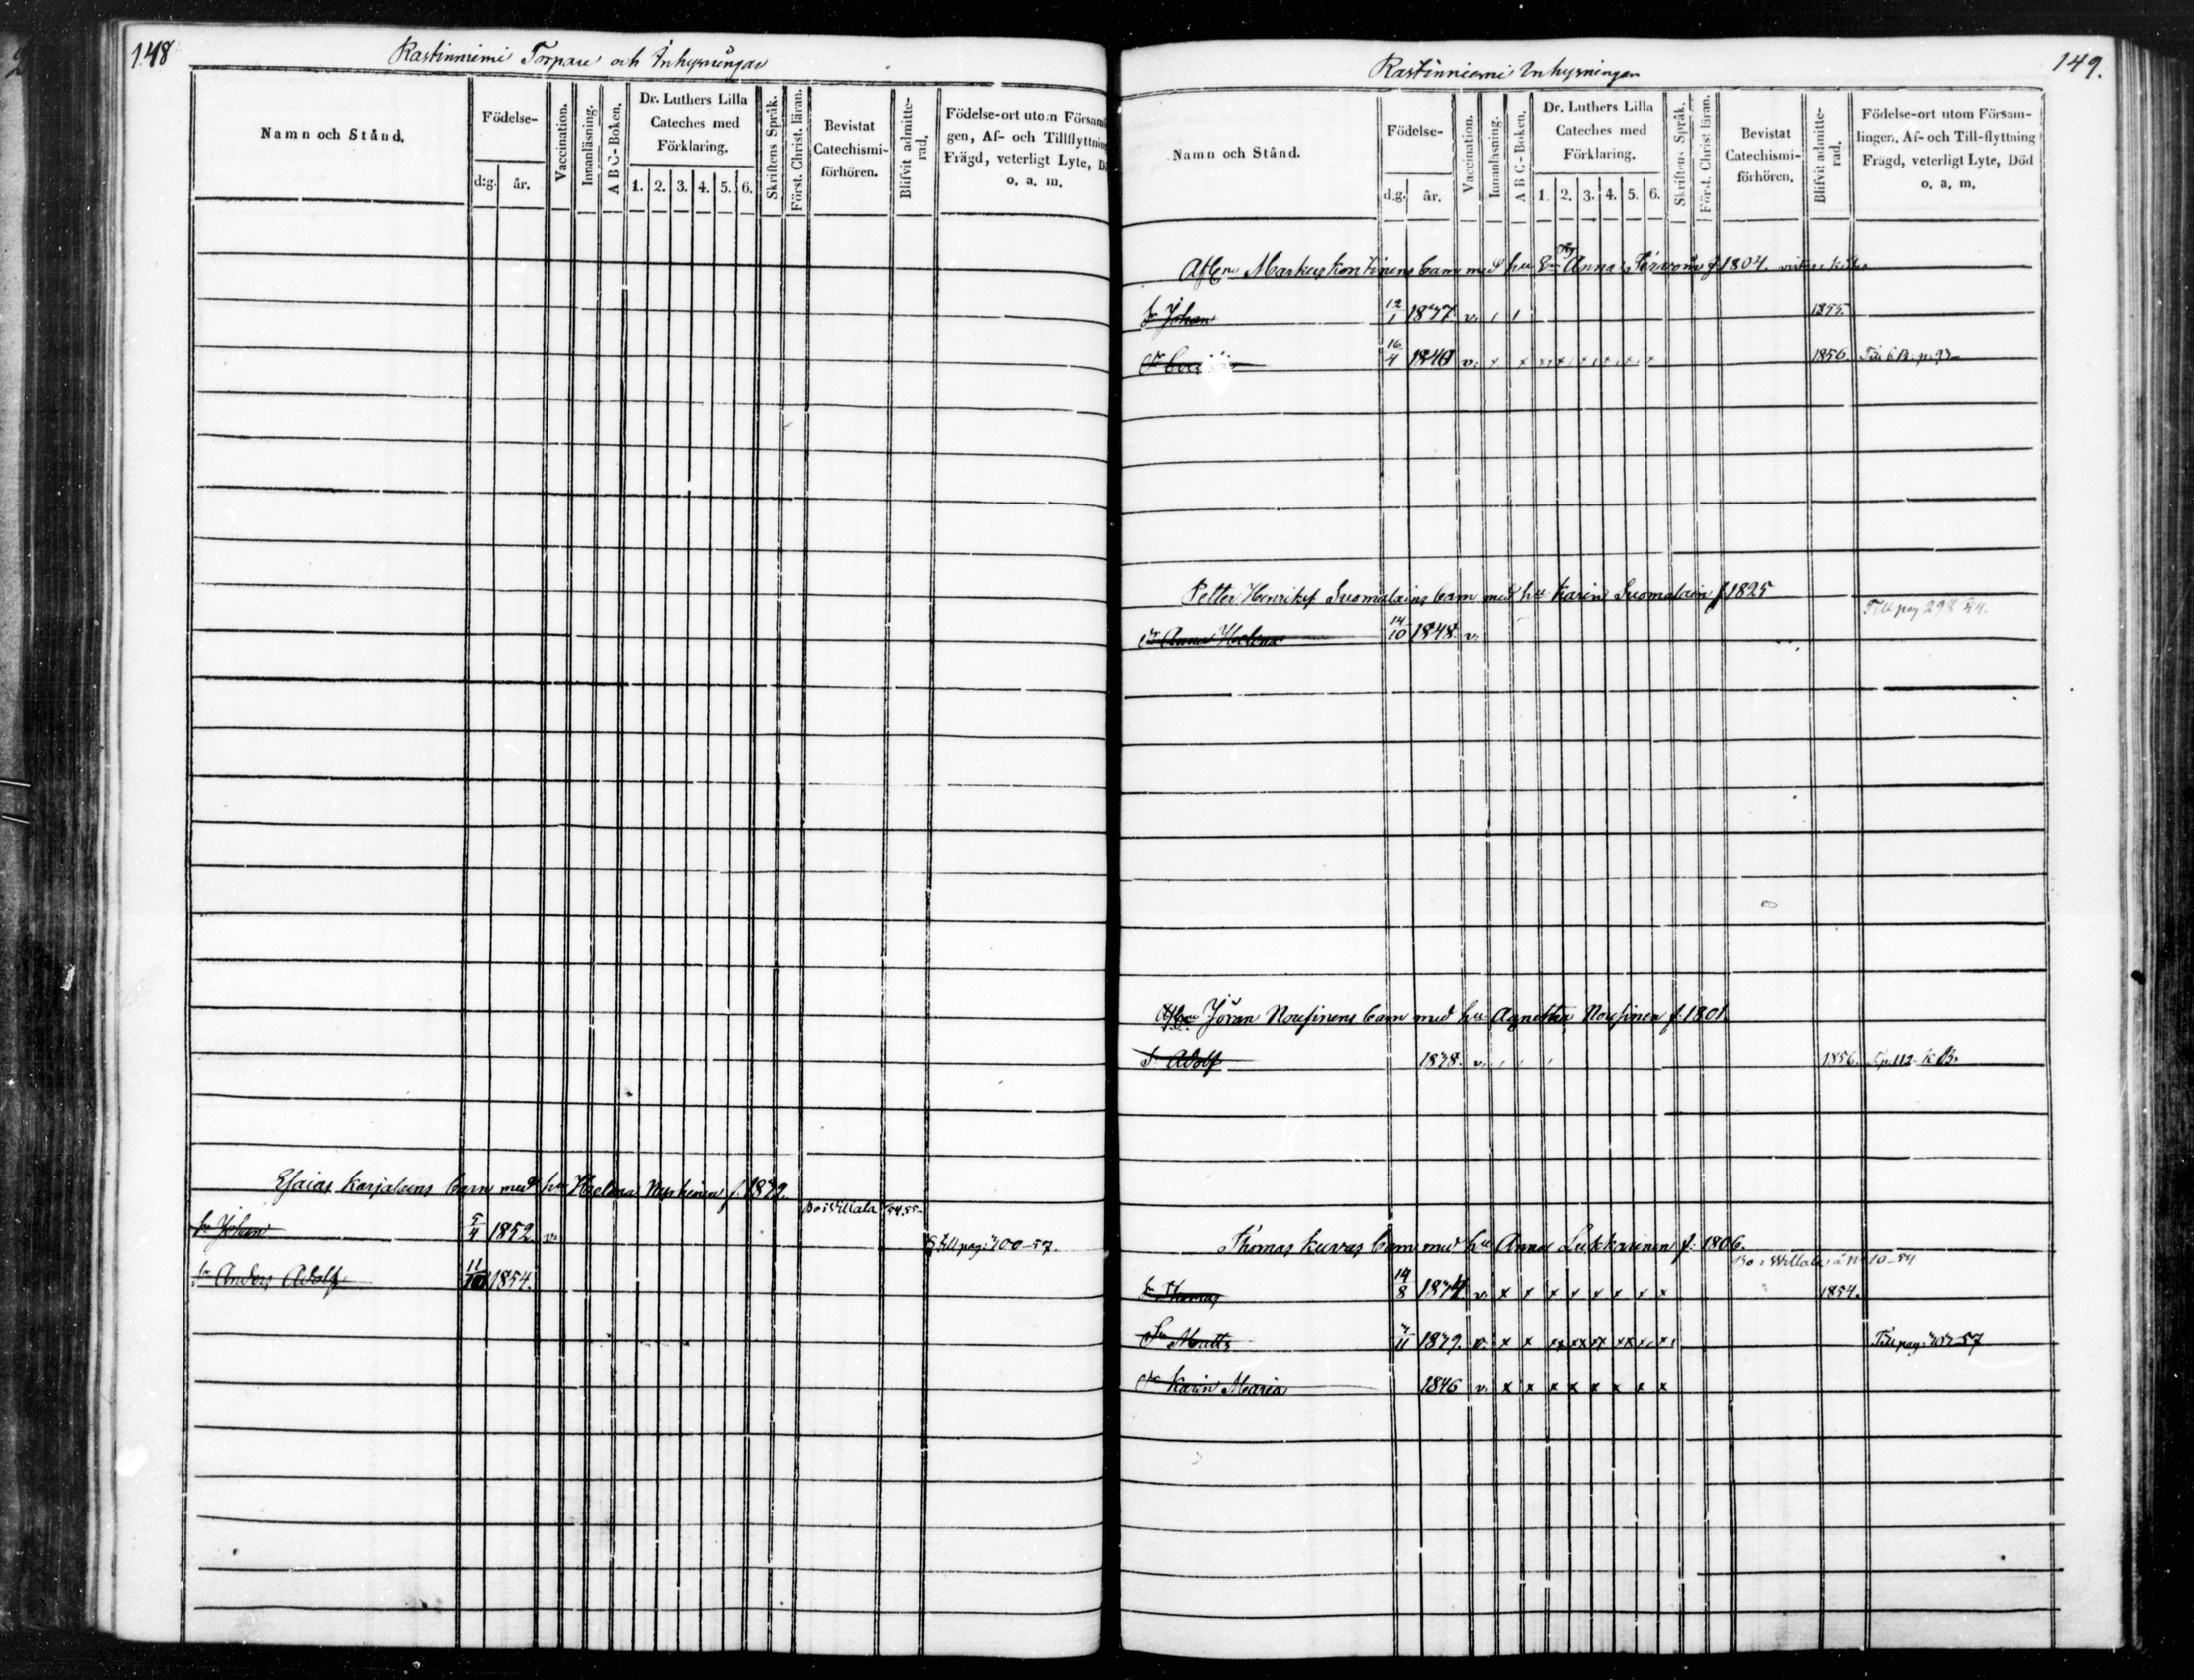 148
Rastinniemi Torpare och Inhysningar
Namn och Stånd.
Födelse-
d:g. år.
Vaccination.
Innanläsning.
A B C-Boken.
Dr. Luthers Lilla
Cateches med
Förklaring.
1. 2. 3. 4. 5. 6.
Skriftens Språk.
Först. Christ. läran.
Bevistat
Catechismi-
förhören.
Blifvit admitte-
rad.
Födelse-ort utom Församl
gen, Af- och Tillflyttning
Frägd, veterligt Lyte, D
o. a. m.
Esaias Karjalains barn med hu Helena f. 1822.
Bo i Villala 54.55.
Sr Johan 5/4 1852. v.
Till pag: 400-57.
Sr Anders Adolf 11/10 1854.
149.
Rastinniemi Inhysningar
Namn och Stånd.
Födelse-
d.g. år.
Vaccination.
Innanläsning.
A B C-Boken.
Dr. Luthers Lilla
Cateches med
Förklaring.
1. 2. 3. 4. 5. 6.
Skriftens Språk.
Först. Christ läran.
Bevistat
Catechismi-
förhören.
Blifvit admitte-
rad.
Födelse-ort utom Försam-
lingen, Af- och Till-flyttning
Frägd, veterligt Lyte, Död
o. a. m.
Aflne Markus Kontinens barn med hu Anna f 1804.
Sr Johan 12/1 1837 v. 1855.
16/4 1840 v. x x 1856
Petter Henriks Suomalains barn med hu Karin Suomalain f 1825
Till pag 298 54.
Dr Anna Helena 14/10 1848. v.
Aflne Jöran Nousinens barn med hu Agnetha Nousinen f. 1801.
S. Adolf 1838. v. 1856. T.p. 112 K.B.
Thomas Kuvas barn med hu Anna Lukkarinen f. 1806.
Bo i Willala 10-54
Sr Thomas 14/8 1834. v. x x x x x x x x 1854.
Sr Matts 7/11 1839. v. x x xx xx xx xx x x
Dr Karin Maria 1846 v. x x x x x x x x